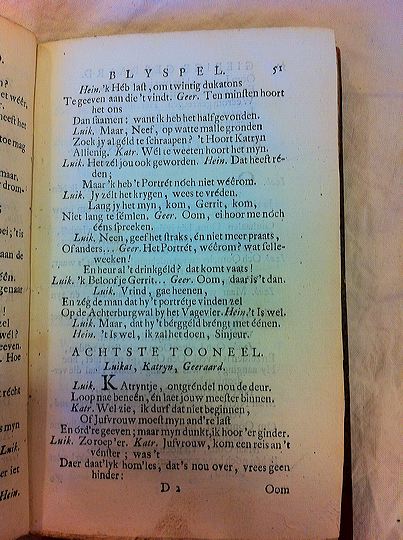 BLYSPEL. 51
Hein. 'k Héb last, om twintig dukatons
Te geeven aan die 't vindt. Geer. Ten minsten hoort
het ons
Dan sáamen; want ik heb het half gevonden.
Luik. Maar, Neef, op watte malle gronden
Zoek jy al géld te schraapen? 't Hoort Katryn
Allienig. Katr. Wél te weeten hoort het myn.
Luik. Het zél jou ook geworden. Hein. Dat heeft ré-
den;
Maar 'k heb 't Portrét nóch niet wéêrom.
Luik. Jy zélt het krygen, wees te vréden.
Lang jy het myn, kom, Gerrit, kom,
Niet lang te sémlen. Geer. Oom, ei hoor me nóch
ééns spreeken.
Luik. Neen, geef het straks, én niet meer praats,
Of anders... Geer. Het Portrét, wéêrom? wat selle-
weeken!
En heur al 't drinkgéld? dat komt vaats!
Luik. 'k Beloof je Gerrit... Geer. Oom, daar is 't dan.
Luik. Vrind, gae heenen,
En zég de man dat hy 't portrétje vinden zel
Op de Achterburgwal by het Vagevier. Hein. 't Is wel.
Luik. Maar, dat hy 't bérggéld bréngt met éénen.
Hein. 't Is wel, ik zal het doen, Sinjeur.
ACHTSTE TOONEEL.
Luikas, Katryn, Geeraard.
Luik. KAtryntje, ontgréndel nou de deur.
Loop nae benéên, én laet jouw meester binnen.
Katr. Wel zie, ik durf dat niet beginnen,
Of Jufvrouw moest myn and're last
En órd're geeven; maar myn dunkt, ik hoor 'er ginder.
Luik. Zo roep 'er. Katr. Jufvrouw, kom een reis an 't
vénster; was 't
Daer daat'lyk hom'les, dat's nou over, vrees geen
hinder:
D 2 Oom
Hein.
Luik.
Hein.